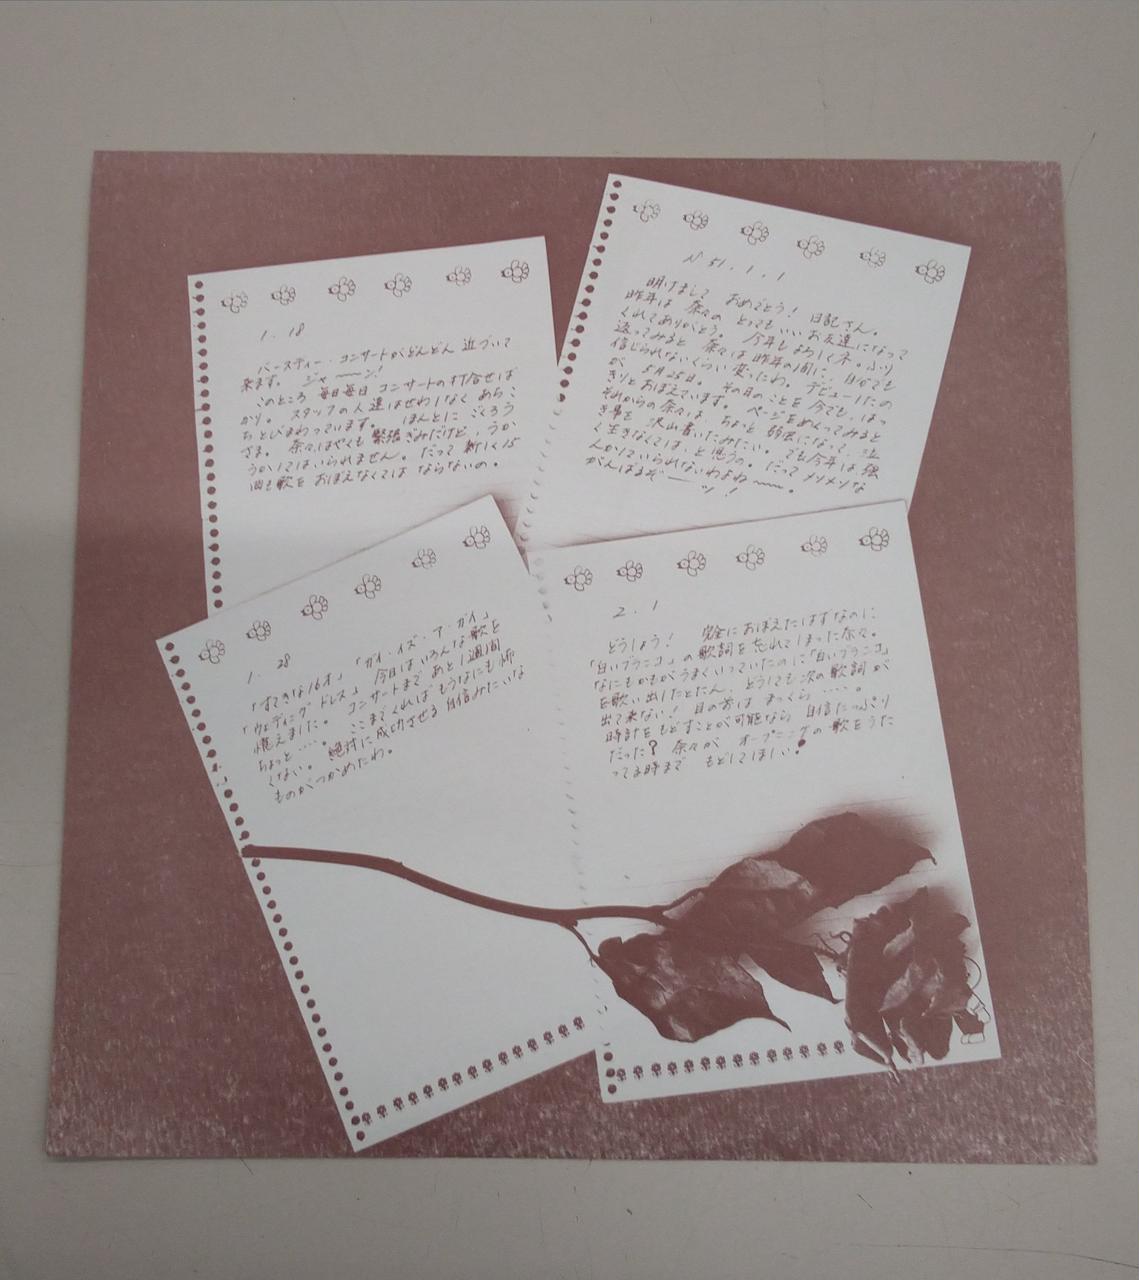 S 51.1.1
明けまして おめでとう! 日記さん。
昨年は 奈々の とってもいいお友達になって
くれてありがとう。 今年もよろしくネ。ふり
返ってみると 奈々は昨年の1年間に、自分でも
信じられないくらい変ったわ。デビューしたの
が 5月25日。その日のことを今でも、はっ
きりとおぼえています。ページをめくってみると
それからの奈々は、ちょっと弱虫になって、泣
き事を 沢山書いたみたい。でも今年は、強
く生きなくては、と思うの。だってメソメソな
んかしていられないわよね〜〜。
がんばるぞーーッ!
1.18
バースディー・コンサートがどんどん 近づいて
来ます。 ジャ〜〜ン!
このところ 毎日毎日 コンサートの打合せば
かり。スタッフの人達はせわしなく あちこ
ちとびまわっています。 ほんとに ごくろう
さま。 奈々はやくも緊張ぎみだけど、うか
うかしてはいられません。だって 新しく15
曲も歌を おぼえなくては ならないの。
1.28
「すてきな16才」 「ガイ・イズ・ア・ガイ」
「ウェディング・ドレス」 今日はいろんな歌を
憶えました。 コンサートまで あと1週間
ちょっと‥‥。 ここまでくれば もうなにも怖
くない。 絶対に成功させる 自信みたいな
ものがつかめたわ。
2.1
どうしょう! 完全におぼえたはずなのに
「白いブランコ」の歌詞を忘れてしまった奈々。
なにもかもがうまくいっていたのに「白いブランコ」
を歌い出したとたん、どうしても次の歌詞が
出て来ない! 目の前は まっくら‥‥。
時計をもどすことが可能なら 自信たっぷり
だった? 奈々が オープニングの歌をうた
ってる時まで もどしてほしい!